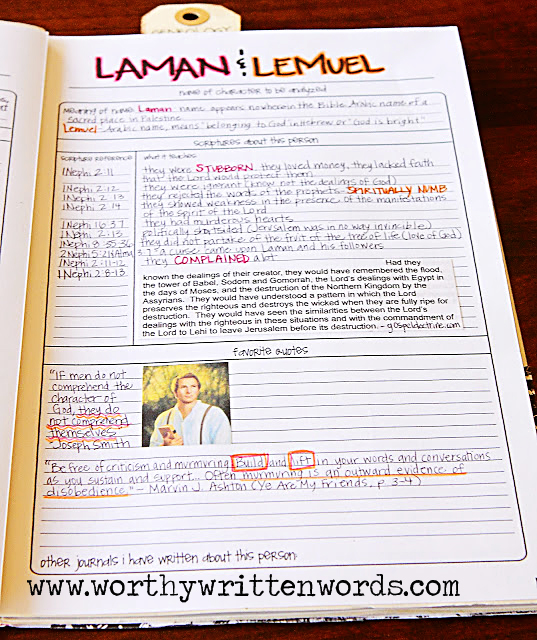 GENEALOGY
LAMAN & LEMUEL
name of character to be analyzed
meaning of name: Laman- name appears nowhere in the Bible. Arabic name of a
sacred place in Palestine
Lemuel- Arabic name, means "belonging to God in Hebrew or "God is bright"
scriptures about this person
scripture reference
what it teaches
1 Nephi 2:11
they were STUBBORN, they loved money, they lacked faith
that the Lord would protect them)
1 Nephi 2:12
they were ignorant (know not the dealings of God)
1 Nephi 2:13
they rejected the words of the prophets- SPIRITUALLY NUMB
1 Nephi 2:14
they showed weakness in the presence of the manifestations
of the spirit of the Lord
1 Nephi 16:37
they had murderous hearts
1 Nephi 2:13
politically shortsided (Jerusalem was in no way invincible)
1 Nephi 8:35,36
they did not partake of the fruit of the tree of life (love of God)
2 Nephi 5:21
a curse came upon Laman and his followers
1 Nephi 2:11-12
they COMPLAINED a lot
1 Nephi 2:8-13
Had they
known the dealings of their creator, they would have remembered the flood,
the tower of Babel, Sodom and Gomorrah, the Lord's dealings with Egypt in
the days of Moses, and the destruction of the Northern Kingdom by the
Assyrians. They would have understood a pattern in which the Lord
preserves the righteous and destroys the wicked when they are fully ripe for
destruction. They would have seen the similarities between the Lord's
dealings with the righteous in these situations and with the commandment of
the Lord to Lehi to leave Jerusalem before its destruction. - gospeldoctrine.com
favorite quotes
"IF men do not
comprehend the
character of
God, they do
not comprehend
themselves
Joseph Smith
"Be free of criticism and murmuring. Build and lift in your words and conversations
as you sustain and support. Often murmuring is an outward evidence of
disobedience." - Marvin J. Ashton (Ye Are My Friends, p 3-4)
other journals i have written about this person:
www.worthywrittenwords.com